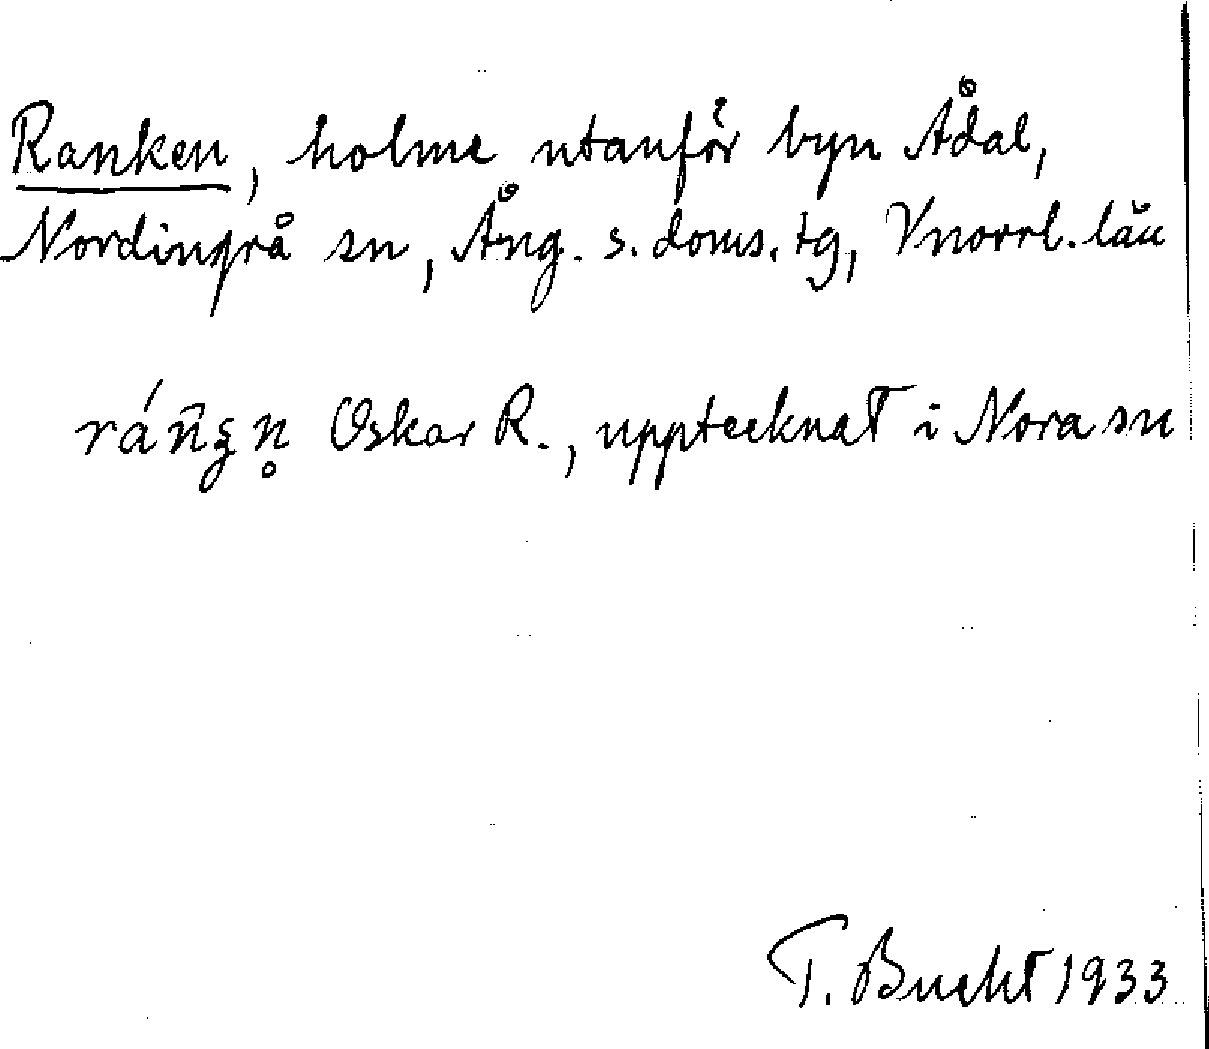 Ranken, holme utanför byn Ådal,
Nordingrå sn, Ång. s. doms. tg, Vnorrl. län
Oskar R., upptecknat i Nora sn
T. Bucht 1933